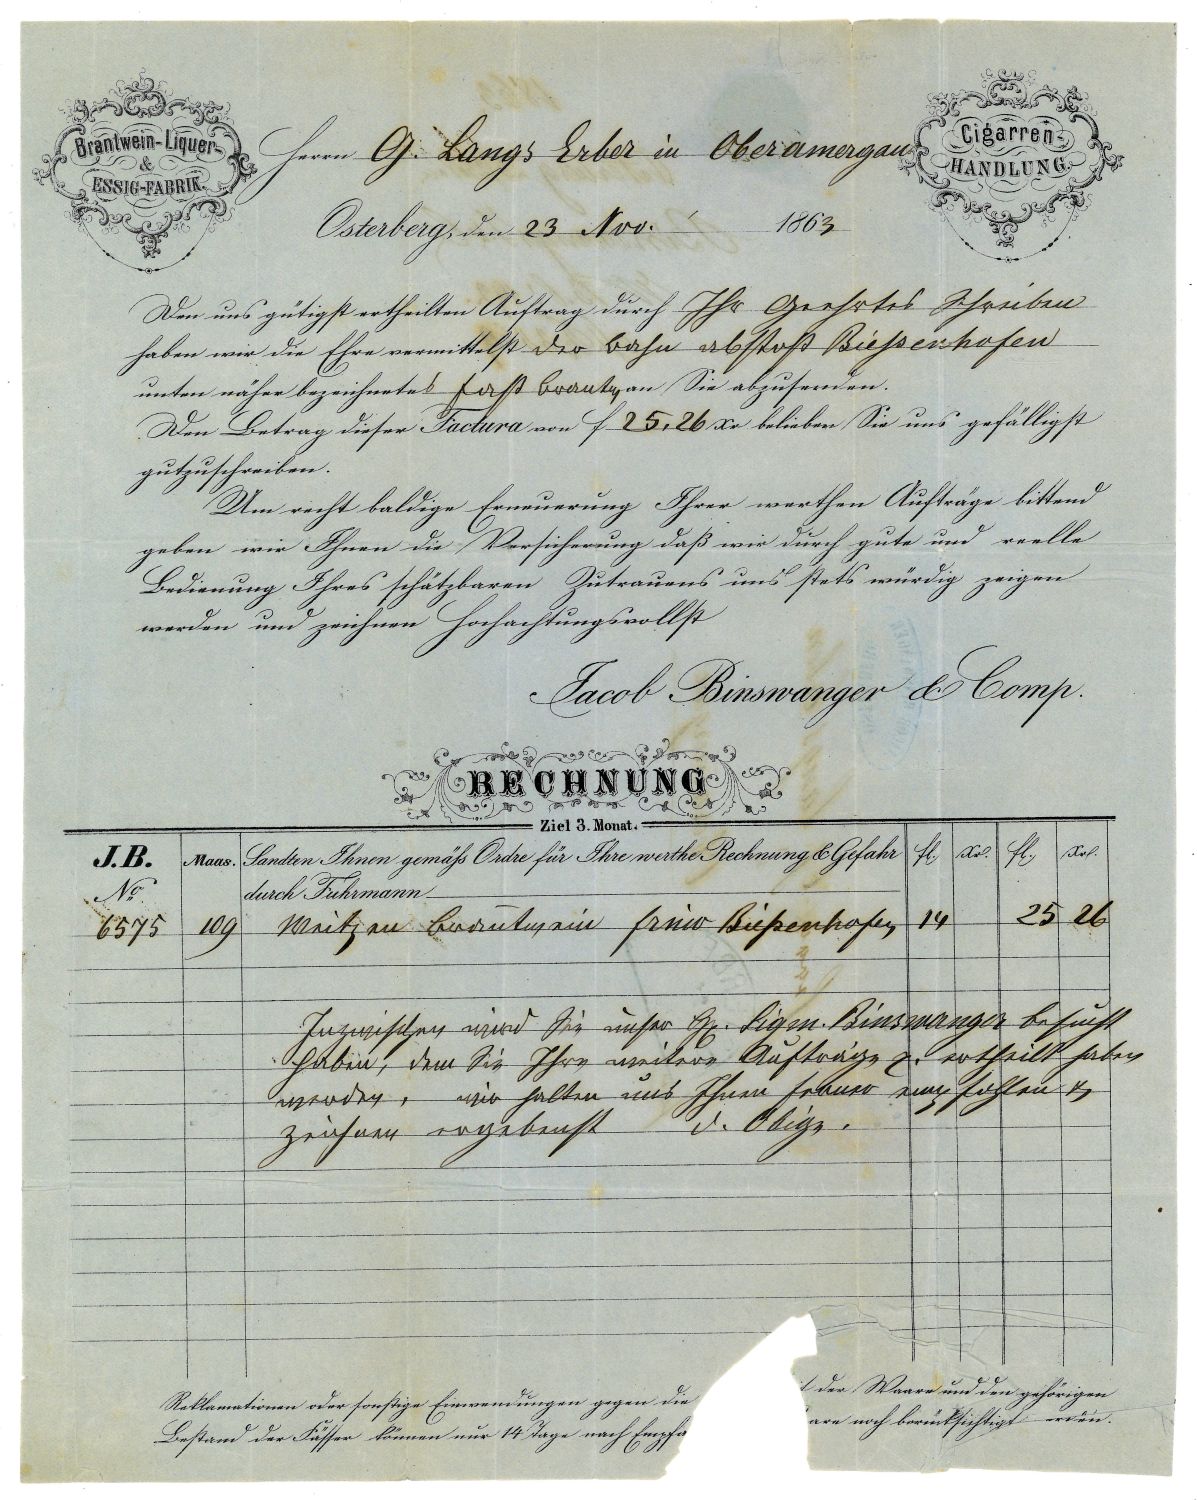 Brantwein-Liquer-
&
ESSIG-FABRIK.
Cigarren-
HANDLUNG.
Herrn G. Langs Erber in Oberamergau
Osterberg, den 23 Nov. 1863
Den uns gütigst ertheilten Auftrag durch Ihr Geehrtes Schreiben
haben wir die Ehre vermittelst der Bahn abstoß Bießenhofen
unten näher bezeichnetes Faß Brantw an Sie abzusenden.
Den Betrag dieser Factura von f 25,26 Xr belieben Sie uns gefälligst
gutzuschreiben.
Um recht baldige Erneuerung Ihrer werthen Aufträge bittend
geben wir Ihnen die Versicherung daß wir durch gute und reelle
Bedienung Ihres schätzbaren Zutrauens uns stets würdig zeigen
werden und zeichnen Hochachtungsvollst
Jacob Binswanger & Comp.
RECHNUNG
Ziel 3. Monat.
J.B. Maas. Sandten Ihnen gemäß Ordre für Ihre werthe Rechnung & Gefahr fl. Xr. fl. Xr.
No durch Fuhrmann
6575 109 Weitzen Brantwein Bießenhofen 14 25 26
Inzwischen wird Sie unser H. Sigm. Binswanger besucht
haben, dem Sie Ihre weitere Aufträge ertheilt haben
werden, wir halten uns Ihnen ferner empfohlen &
zeichnen ergebenst d. Obige.
Reklamationen oder sonstige Einwendungen gegen die der Waare und den gehörigen
Bestand der Fässer können nur 14 Tage nach Empfa are noch berücksichtigt erden.